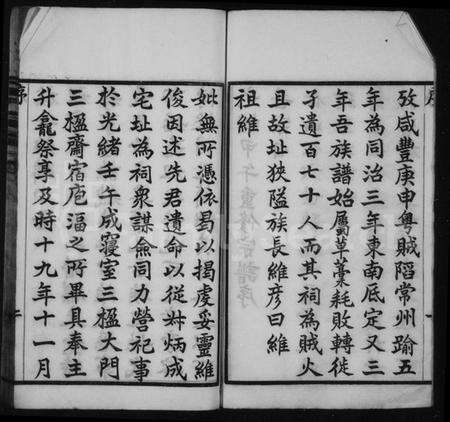 序
攷咸豐庚申粤賊陷常州踰五
年為同治三年東南底定又三
年吾族譜始屬草藁耗敗轉徙
孑遺百七十人而其祠為賊火
且故址狹隘族長維彥曰維
祖維
妣無所憑依曷以揭虔妥靈維
俊因述先君遺命以從姊炳成
宅址為祠衆謀僉同力營祀事
於光緒壬午成寢室三楹大門
三楹齋宿庖湢之所畢具奉主
升龕祭享及時十九年十一月
序